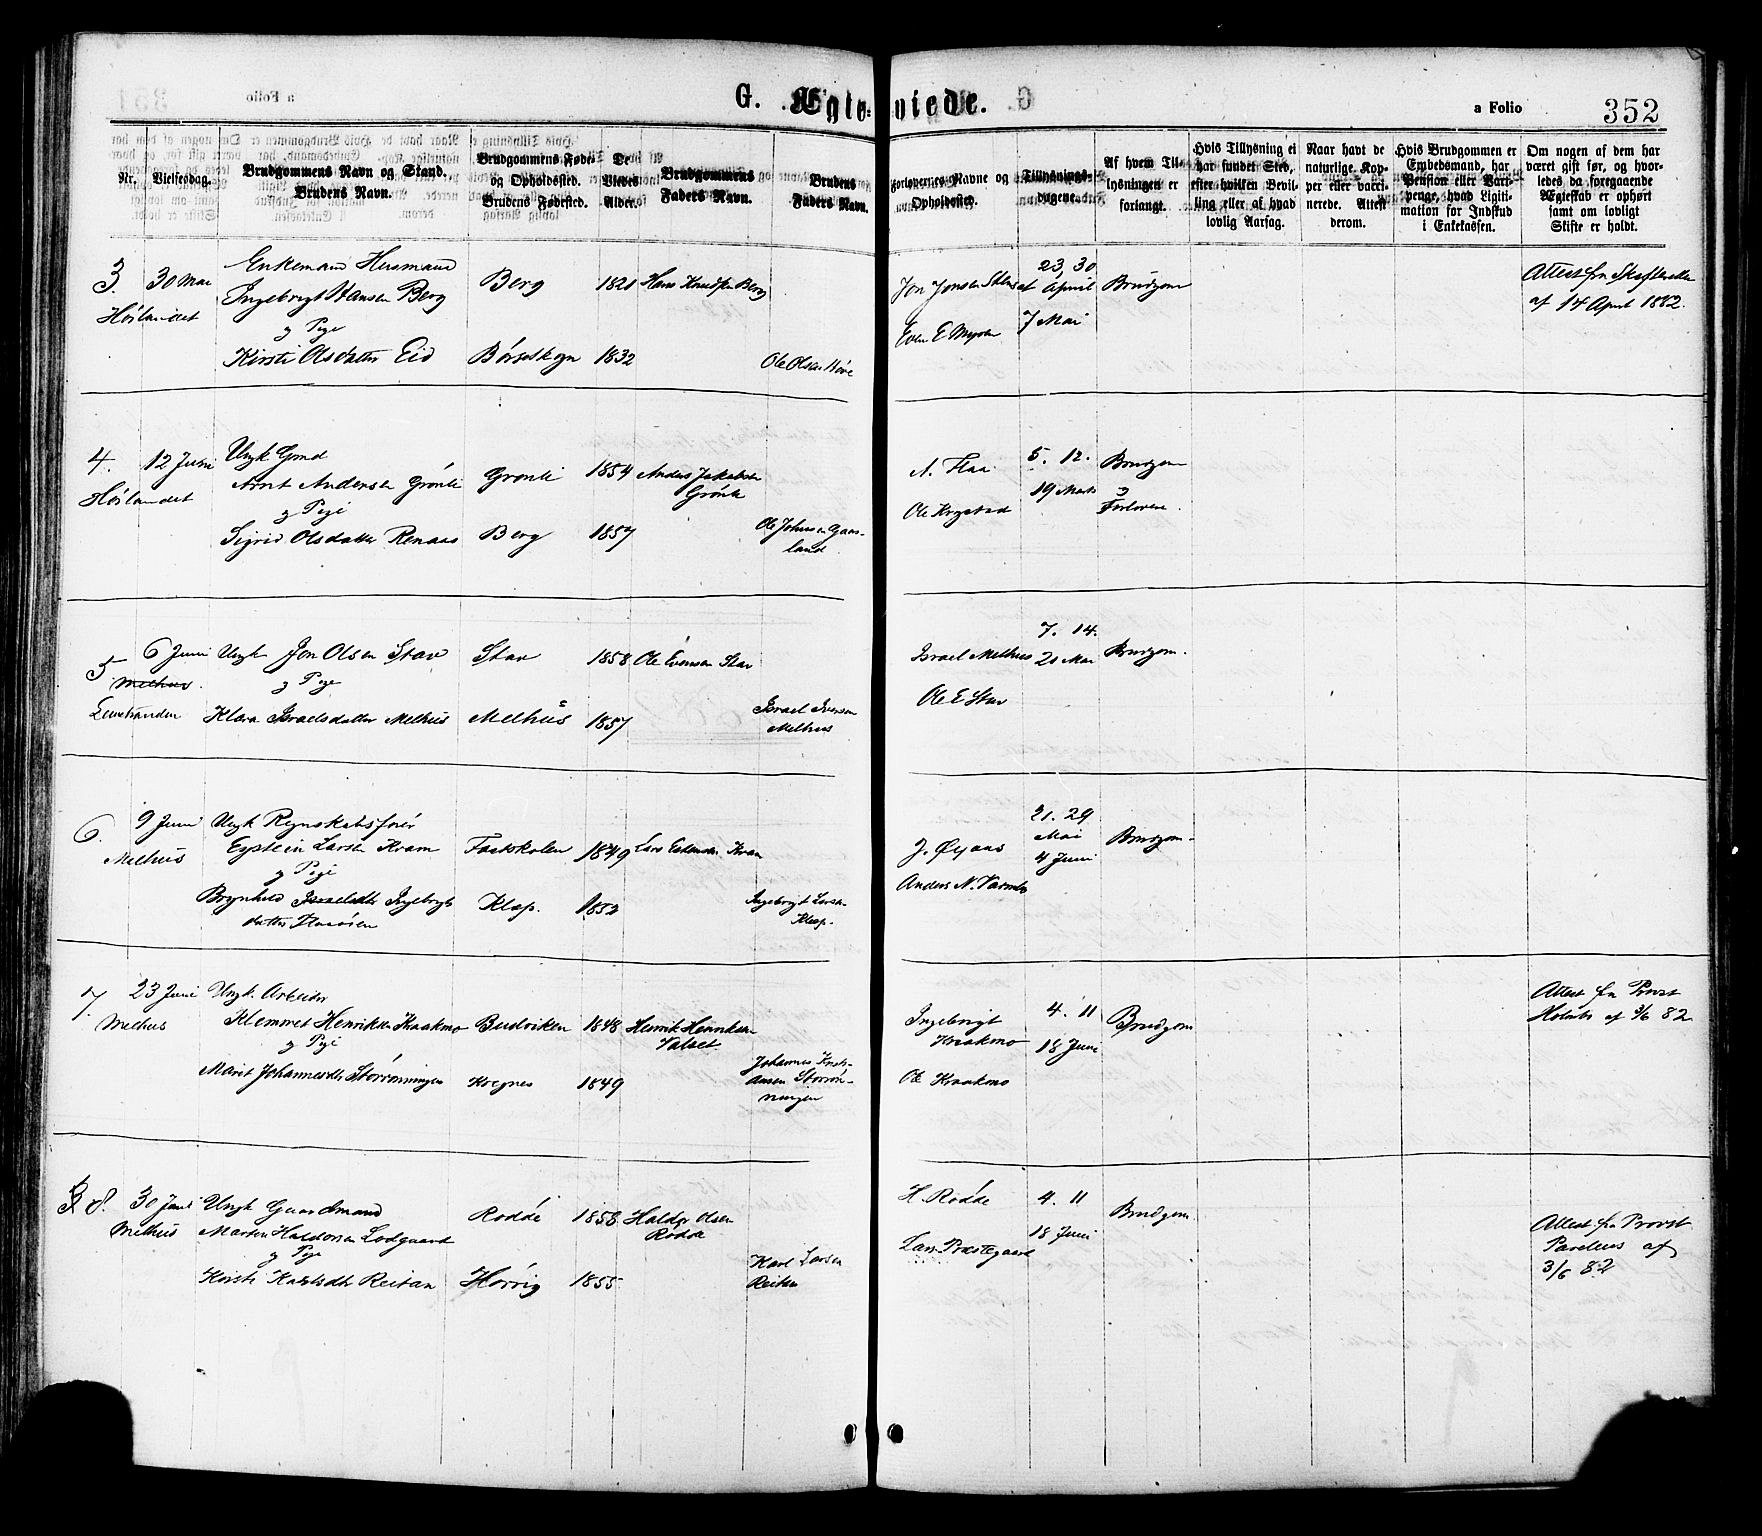 G. Ægte-
viede.
a Folio 352
Nr.
Vielsesdag.
Brudgommens Navn og Stand.
Brudens Navn.
Brudgommens Føde-
og Opholdssted.
Brudens Fødested.
De
Viedes
Alder.
Brudgommens
Faders Navn.
Brudens
Faders Navn.
Forlovernes Navne og
Opholdssted.
Tillysnings-
dagene.
Af hvem Til-
lysningen er
forlangt.
Hvis Tillysning ei
har fundet Sted,
efter hvilken Bevil-
ling eller af hvad
lovlig Aarsag.
Naar havt de
naturlige Kop-
per eller vacci-
nerede. Attest
derom.
Hvis Brudgommen er
Embedsmand, har
Pension eller Vart-
penge, hvad Ligiti-
mation for Indskud
i Enkekassen.
Om nogen af dem har
været gift før, og hvor-
ledes da foregaaende
Ægteskab er ophørt
samt om lovligt
Skifte er holdt.
3.
30 Mai
Høilandet
Enkemand Husmand
Ingebrigt Hansen Berg
og Pige
Kirsti Olsdatter Eid
Berg
Børseskogn
1821
1832
Hans Knudsen Berg
Ole Olsen
Jon Jonsen
Even E
23, 30
April
7 Mai
Brudgom
Attest fra
af 14 April 1882.
4.
12 Juni
Høilandet
Ungk Gmd
Arnt Andersen Grønli
og Pige
Sigrid Olsdatter Renaas
Grønli
Berg
1854
1857
Anders Jakobsen
Grønli
Ole Johnsen Gaas-
land
A. Flaa
Ole Krogstad
5. 12.
19 Marts
Brudgom
og
Forlovere.
5.
6 Juni
Melhus.
Leinstranden
Ungk Jon Olsen Stav
og Pige
Klara Israelsdatter Melhus
Stav
Melhus
1858
1857
Ole Evensen Stav
Israel Iversen
Melhus
Israel Melhus
Ole E Stav
7. 14.
21 Mai
Brudgom.
6.
9 Juni
Melhus
Ungk Regnskabsfører
Eystein Larsen Kvam
og Pige
Brynhild Israelsdtr Ingebrigts
datter
Folkskolen
Klæp.
1849
1852
Lars Kvam
Ingebrigt Larsen
Klæp.
J. Øyaas
Anders N. Varmbo
21. 29
Mai
4 Juni
Brudgom.
7.
23 Juni
Melhus
Ungk. Arbeider
Klemmet Henriksen Kraakmo
og Pige
Marit Johannesdtr Storrønningen
Budviken
Kregnes
1848
1849
Henrik Henriksen
Valset.
Johannes Kristi-
ansen Storrøn-
ningen
Ingebrigt
Kraakmo
Ole Kraakmo
4. 11
18 Juni
Brudgom
Attest fra Provst
Holmbo af 3/6 82
8.
30 Juni
Melhus
Ungk Gaardmand
Morten Haldorsen Lodgaard
og Pige
Kirsti Karlsdtr Reitan
Rødde
Horrig
1858
1855
Haldor Olsen
Rødde
Karl Larsen
Reitan
H. Rødde
Lars Præstegaard
4. 11
18 Juni
Brudgom.
Attest fra Provst
Parelius af
3/6 82